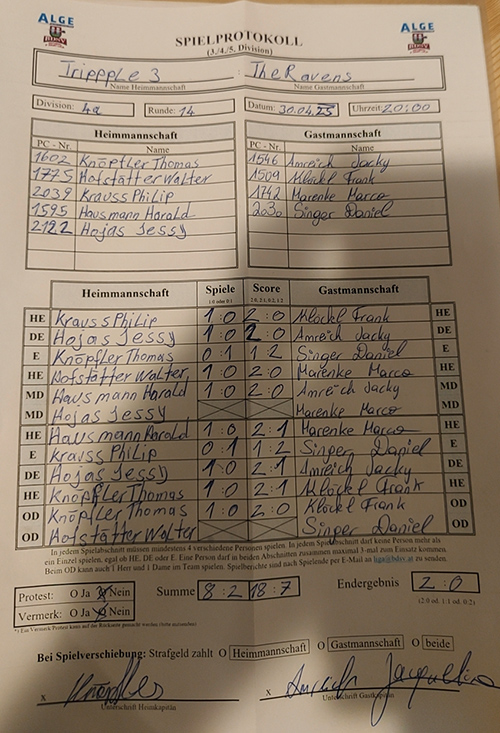 ALGE ALGE
BDSV BDSV
SPIELPROTOKOLL
(3./4./5. Division)
Trippple 3 : The Ravens
Name Heimmannschaft Name Gastmannschaft
Division: 4a Runde: 14 Datum: 30.04.25 Uhrzeit: 20:00
Heimmannschaft Gastmannschaft
PC - Nr. Name PC - Nr. Name
1602 Knöpfler Thomas 1546 Amreich Jacky
1775 Hofstätter Walter 1509 Klöckl Frank
2039 Krauss Philip 1742 Marenke Marco
1595 Hausmann Harald 2030 Singer Daniel
2122 Hojas Jessy
Heimmannschaft Spiele Score Gastmannschaft
1:0 oder 0:1 2:0, 2:1, 0:2, 1:2
HE Krauss Philip 1:0 2:0 Klöckl Frank HE
DE Hojas Jessy 1:0 2:0 Amreich Jacky DE
E Knöpfler Thomas 0:1 1:2 Singer Daniel E
HE Hofstätter Walter 1:0 2:0 Marenke Marco HE
MD Hausmann Harald 1:0 2:0 Amreich Jacky MD
MD Hojas Jessy Marenke Marco MD
HE Hausmann Harald 1:0 2:1 Marenke Marco HE
E Krauss Philip 0:1 1:2 Singer Daniel E
DE Hojas Jessy 1:0 2:1 Amreich Jacky DE
HE Knöpfler Thomas 1:0 2:1 Klöckl Frank HE
OD Knöpfler Thomas 1:0 2:0 Klöckl Frank OD
OD Hofstätter Walter Singer Daniel OD
In jedem Spielabschnitt müssen mindestens 4 verschiedene Personen spielen. In jedem Spielabschnitt darf keine Person mehr als
ein Einzel spielen, egal ob HE, DE oder E. Eine Person darf in beiden Abschnitten zusammen maximal 3-mal zum Einsatz kommen.
Beim OD kann auch 1 Herr und 1 Dame im Team spielen. Spielberichte sind nach Spielende per E-Mail an liga@bdsv.at zu senden.
Protest: O Ja O Nein Summe 8:2 18:7 Endergebnis 2:0
Vermerk: O Ja O Nein (2:0 od. 1:1 od. 0:2)
Bei Spielverschiebung: Strafgeld zahlt O Heimmannschaft O Gastmannschaft O beide
x Knöpfler x Amreich Jacqueline
Unterschrift Heimkapitän Unterschrift Gastkapitän